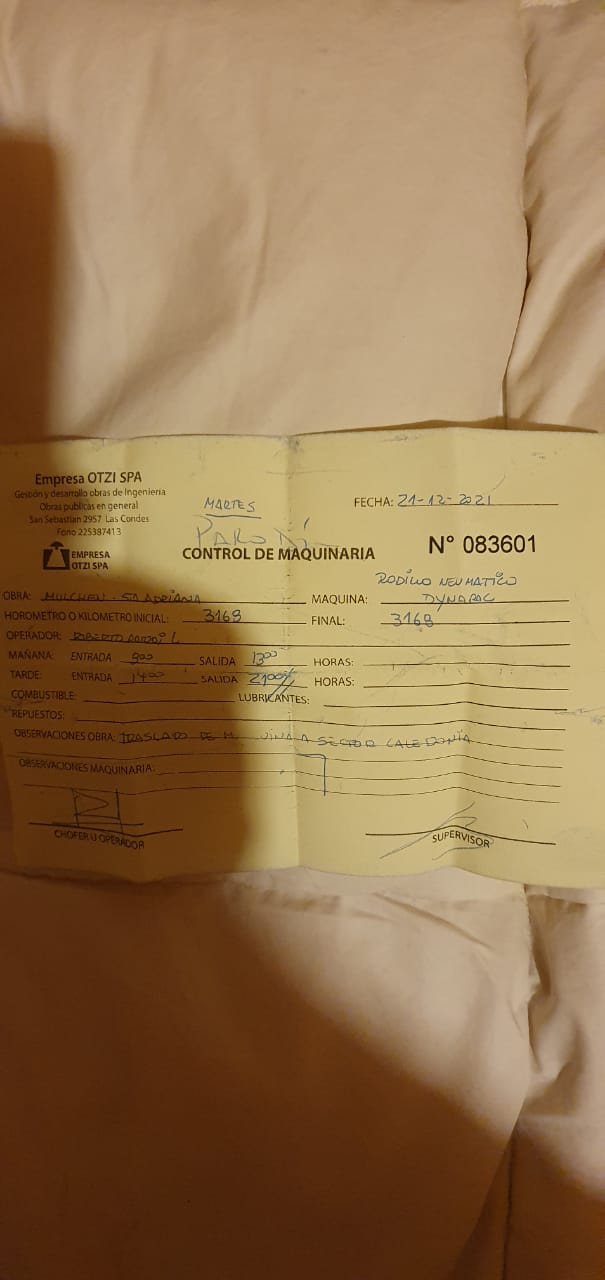 Empresa OTZI SPA
Gestión y desarrollo obras de Ingenieria
Obras publicas en general
San Sebastian 2957 Las Condes
Fono 225387413
EMPRESA
OTZI SPA
MARTES
FECHA: 21-12-2021
CONTROL DE MAQUINARIA
N° 083601
OBRA: MULCHEN - STA ADRIANA
MAQUINA: RODILLO NEUMATICO
DYNAPAC
HOROMETRO O KILOMETRO INICIAL: 3168
FINAL: 3168
OPERADOR: ROBERTO
MAÑANA: ENTRADA 900 SALIDA 1300 HORAS:
TARDE: ENTRADA 1400 SALIDA 2100 HORAS:
COMBUSTIBLE: LUBRICANTES:
REPUESTOS:
OBSERVACIONES OBRA: TRASLADO DE A SECTOR CALEDONIA
OBSERVACIONES MAQUINARIA:
CHOFER U OPERADOR
SUPERVISOR